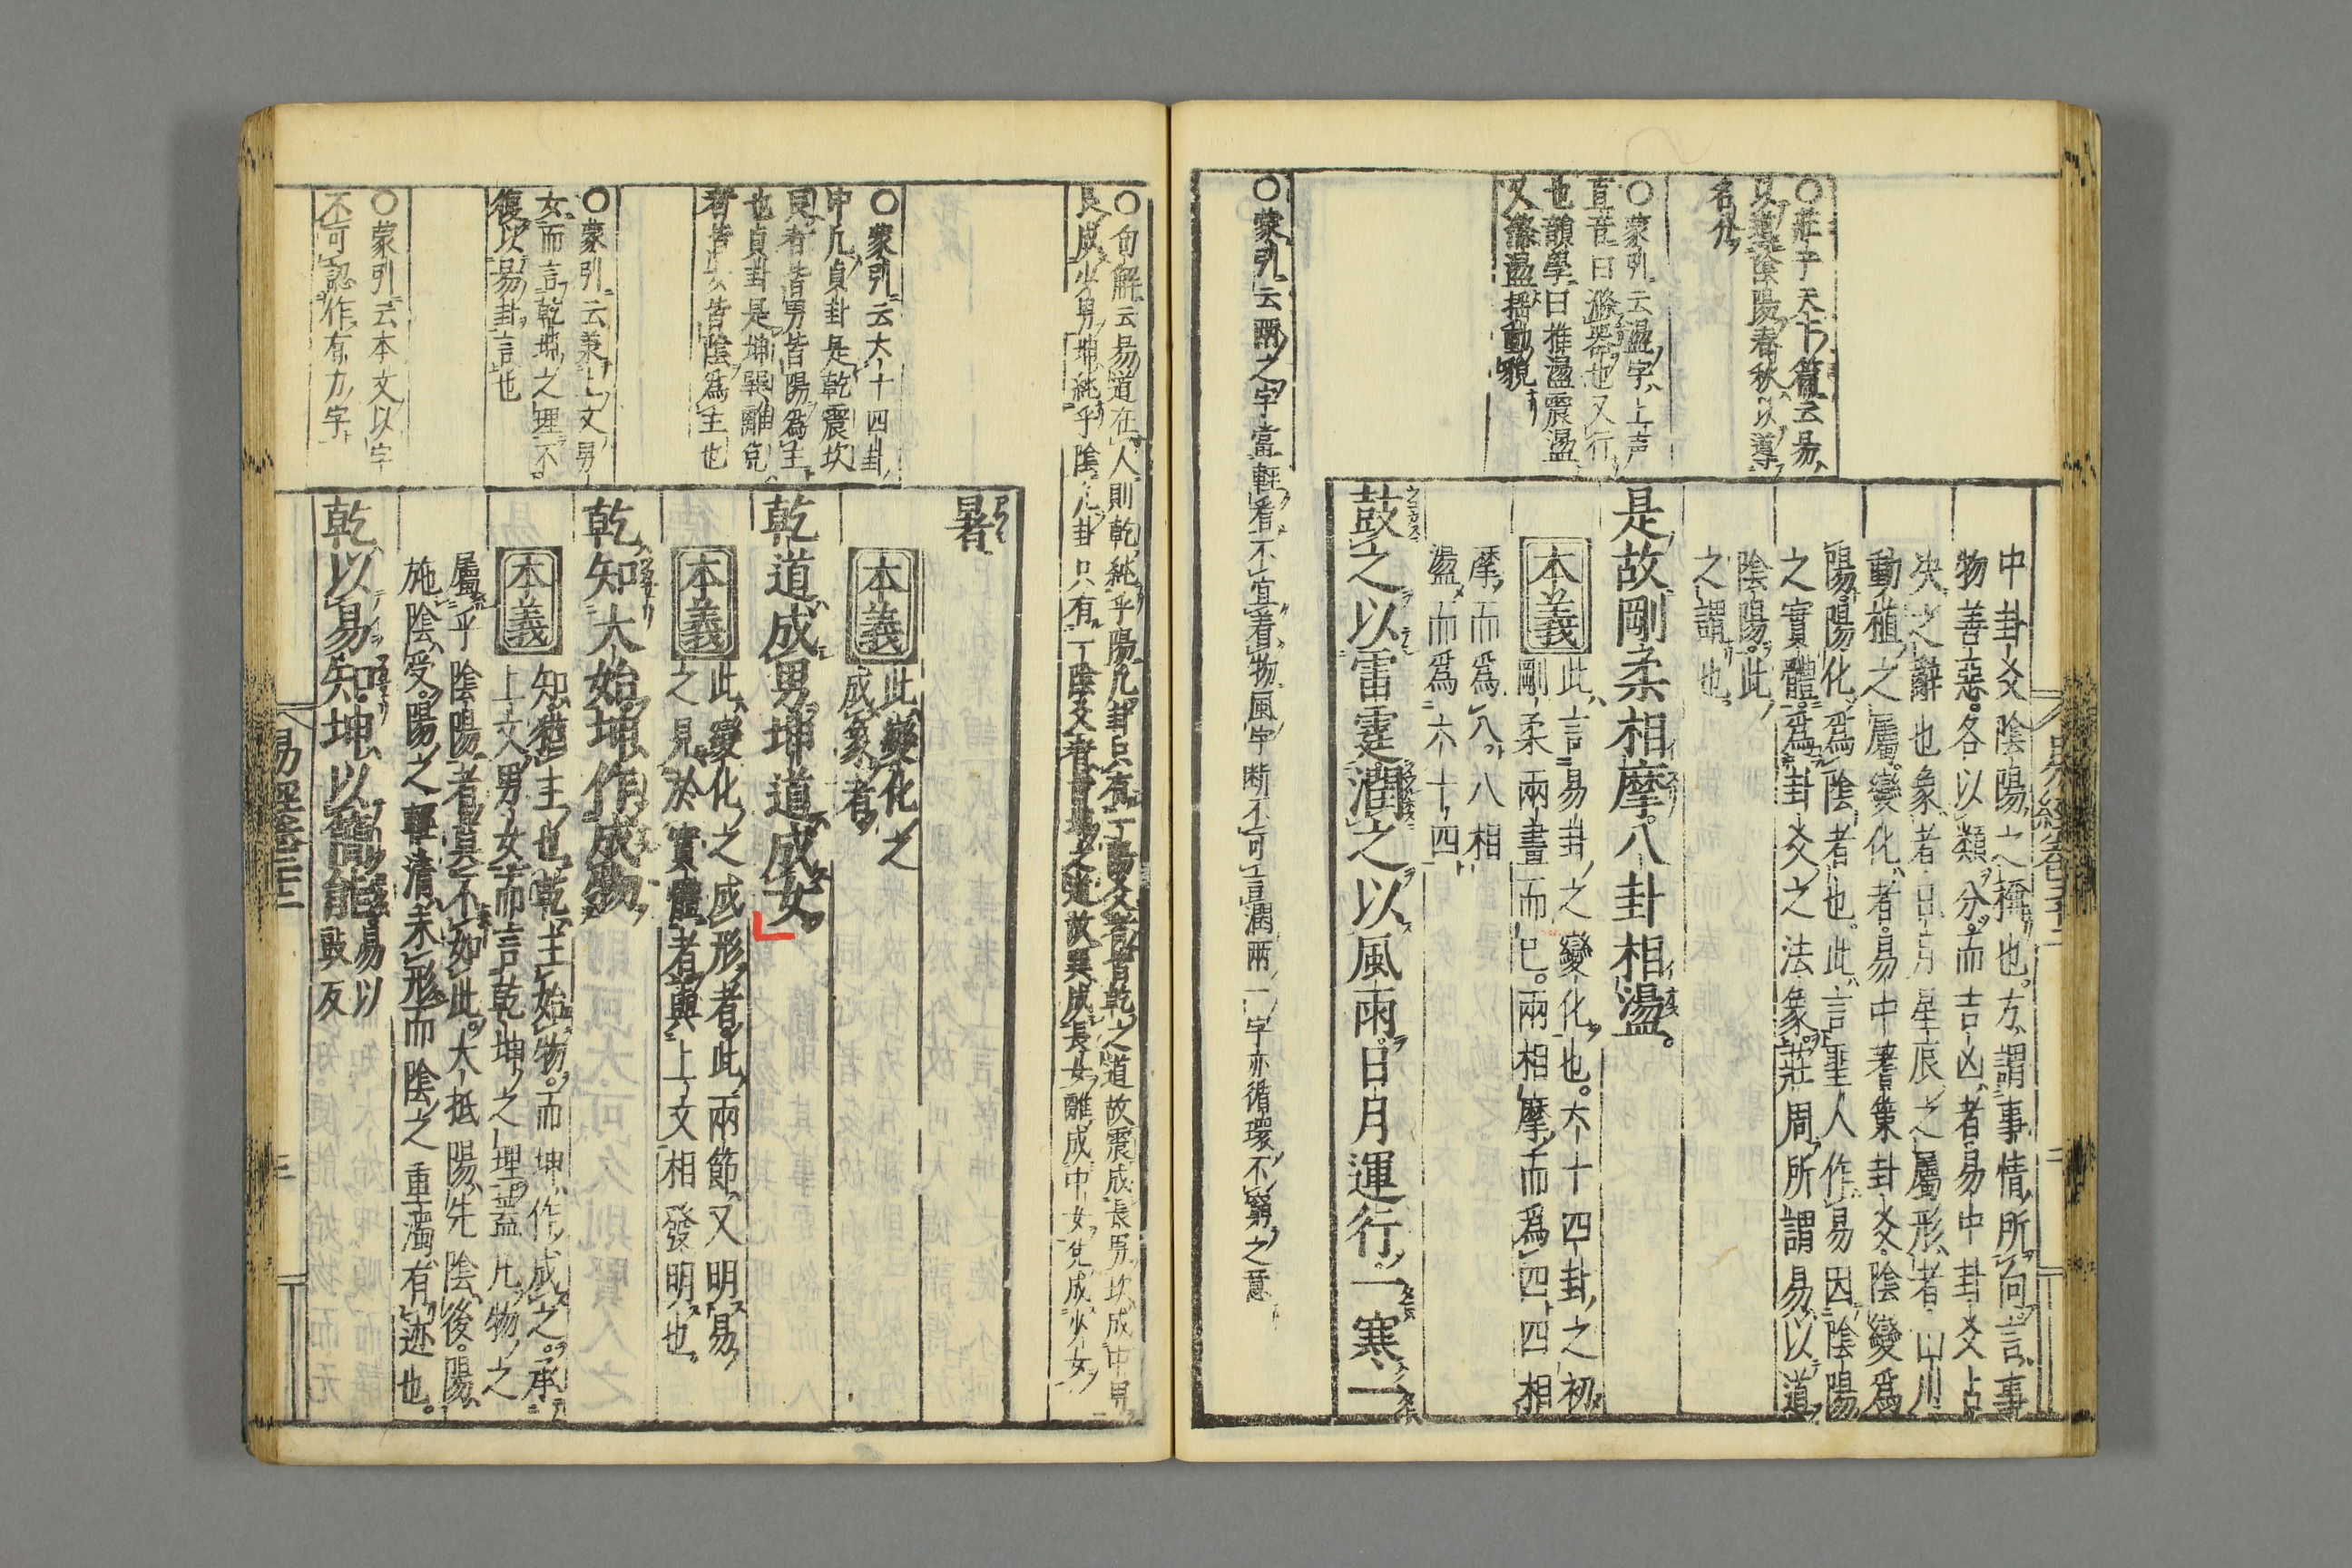 中卦爻陰陽之稱也。方謂事情所向言事
物善惡。各以類分。而吉凶者易中卦爻占
決之辭也象者日月星辰之屬形者山川
動植之屬。變化者。易中蓍策卦爻。陰變爲
陽。陽化爲陰者也。此言聖人作易因陰陽
之實體。爲卦爻之法象。莊周所謂易以道
陰陽。此
之謂也
是故剛柔相摩。八卦相盪。
本義
此言易卦之變化也。六十四卦之初
剛柔兩畫而已。兩相摩而爲四四相
摩而爲八。八相
盪而爲六十四
鼓之以雷霆潤之以風雨。日月運行。一寒一
○莊子天下篇云易
以道陰陽春秋以導
名分
○蒙引云盪字上声
直音曰滌器也又行
也韻學曰推盪震盪
又滌盪揺動貌
○蒙引云兩之字當輕看不宜着物風字断不可言潤兩一字亦循環不窮之意
○句解云易道在人則乾純乎陽凡卦只有一陽爻者皆乾之道故震成長男坎成中男
艮成少男坤純乎陰凡卦只有一陰爻者皆坤之道故巽成長女離成中女兌成少女
暑
本義
此變化之
成象者
乾道成男坤道成女。
本義
此變化之成形者。此兩節又明易
之見於實體者與上文相發明也。
乾知大始。坤作成物。
本義
知猶主也乾主始物。而坤作成之。承
上文男女而言乾坤之理。蓋凡物之
屬乎陰陽者莫不如此。大抵陽先陰後。陽
施陰受。陽之輕清未形而陰之重濁有迹也。
乾以易知坤以簡能
易以
豉反
○蒙引云六十四卦
中凡貞卦是乾震坎
艮者皆男皆陽為主
也貞卦是坤巽離兌
者皆女皆陰爲主也
○蒙引云兼上文男
女而言乾坤之理不
復以易卦言也
○蒙引云本文以字
不可認作有力字
易經卷三
三